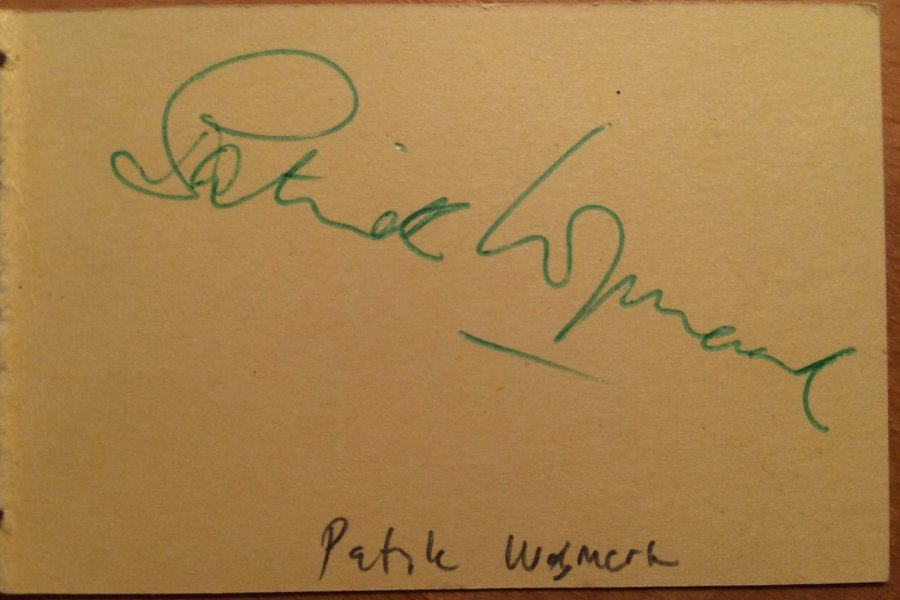 Patrick Wymark
Patrik Woymark